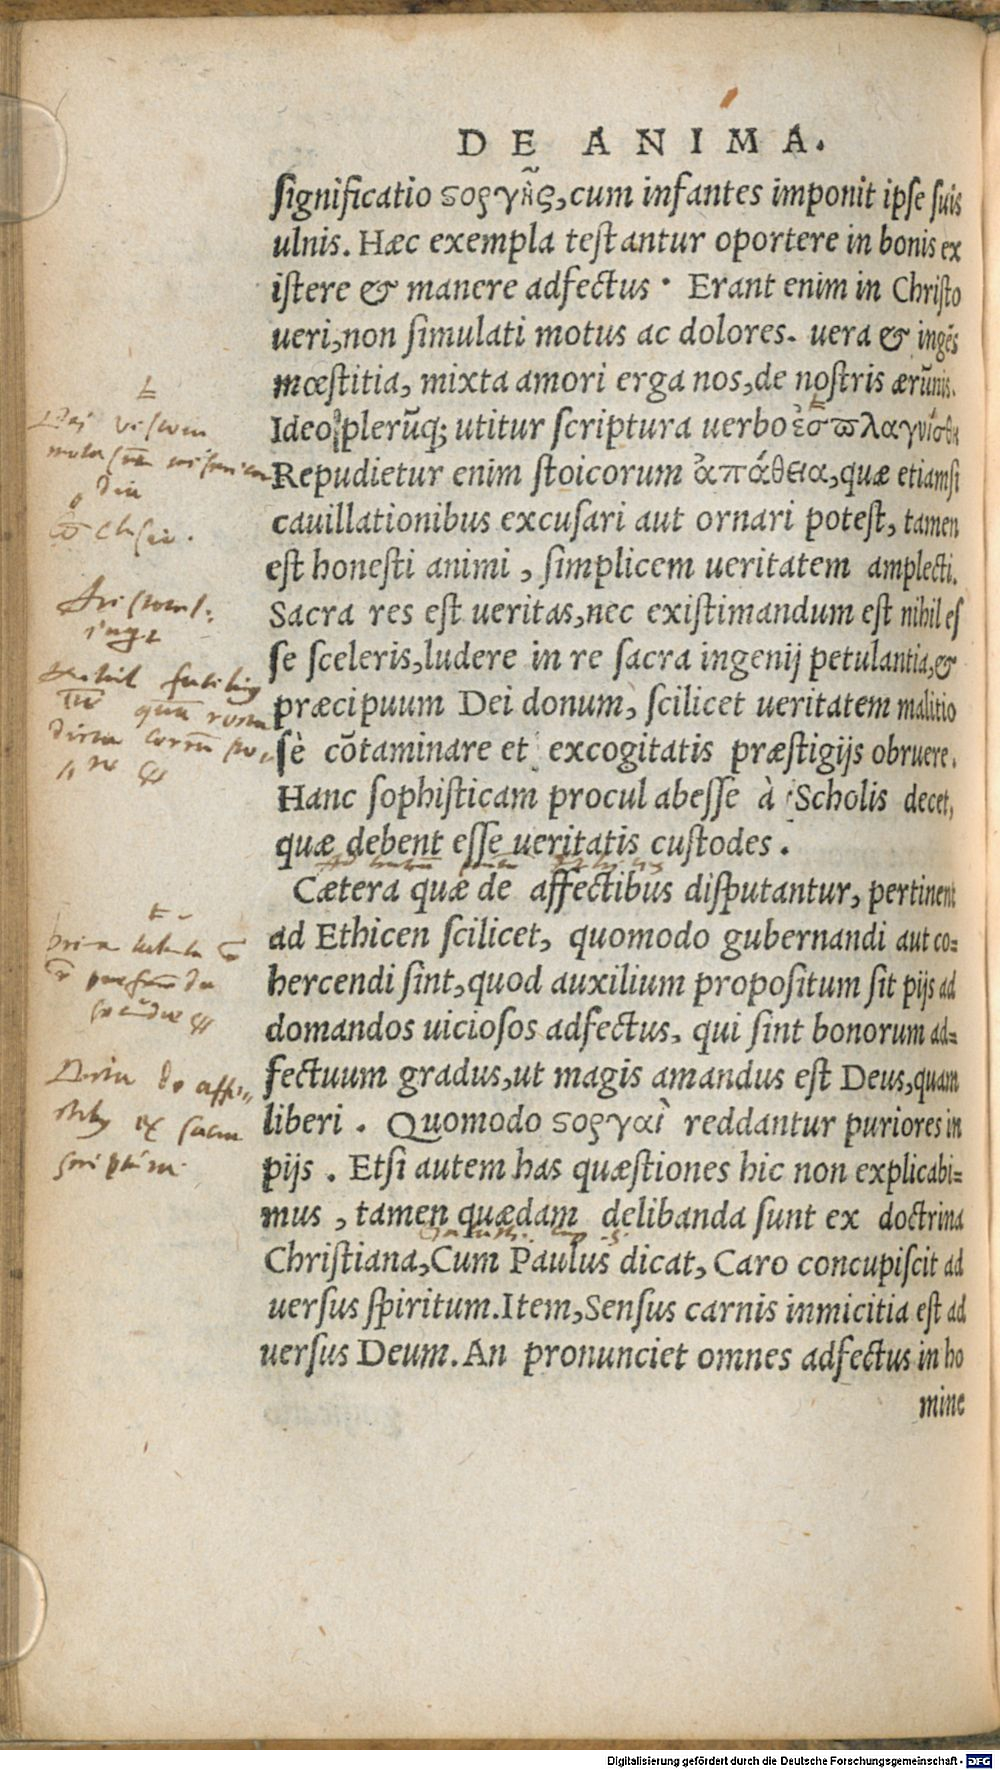 DE ANIMA.
significatio ϛοργῆς, cum infantes imponit ipse suis
ulnis. Hæc exempla testantur oportere in bonis ex
istere & manere adfectus. Erant enim in Christo
ueri, non simulati motus ac dolores. uera & ingẽs
mœstitia, mixta amori erga nos, de nostris ærũnis.
Ideo plerũq; utitur scriptura uerbo ἐσπλαγνίσθη
Repudietur enim stoicorum ἀπάθεια, quæ etiamsi
cauillationibus excusari aut ornari potest, tamen
est honesti animi, simplicem ueritatem amplecti.
Sacra res est ueritas, nec existimandum est nihil es
se sceleris, ludere in re sacra ingenij petulantia, &
præcipuum Dei donum, scilicet ueritatem malitio
sè cõtaminare et excogitatis præstigijs obruere.
Hanc sophisticam procul abesse à Scholis decet,
quæ debent esse ueritatis custodes.
Cætera quæ de affectibus disputantur, pertinent
ad Ethicen scilicet, quomodo gubernandi aut co=
hercendi sint, quod auxilium propositum sit pijs ad
domandos uiciosos adfectus, qui sint bonorum ad=
fectuum gradus, ut magis amandus est Deus, quam
liberi. Quomodo ϛοργαὶ reddantur puriores in
pijs. Etsi autem has quæstiones hic non explicabi=
mus, tamen quædam delibanda sunt ex doctrina
Christiana, Cum Paulus dicat, Caro concupiscit ad
uersus spiritum. Item, Sensus carnis inmicitia est ad
uersus Deum. An pronunciet omnes adfectus in ho
mine
ex sacra
Digitalisierung gefördert durch die Deutsche Forschungsgemeinschaft - DFG